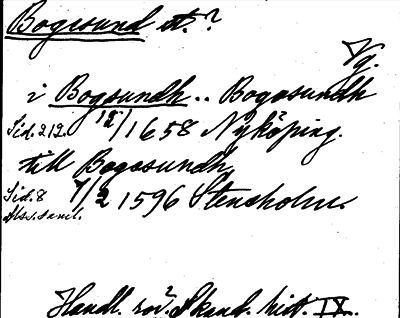 Bogesund st.?
Vg.
i Bogsundh .. Bogosundh
Sid. 212. 12/1 1658 Nyköping.
till Bogssundh
Sid. 8 7/2 1596 Stensholm.
Handl. rör. Skand. hist. IX.